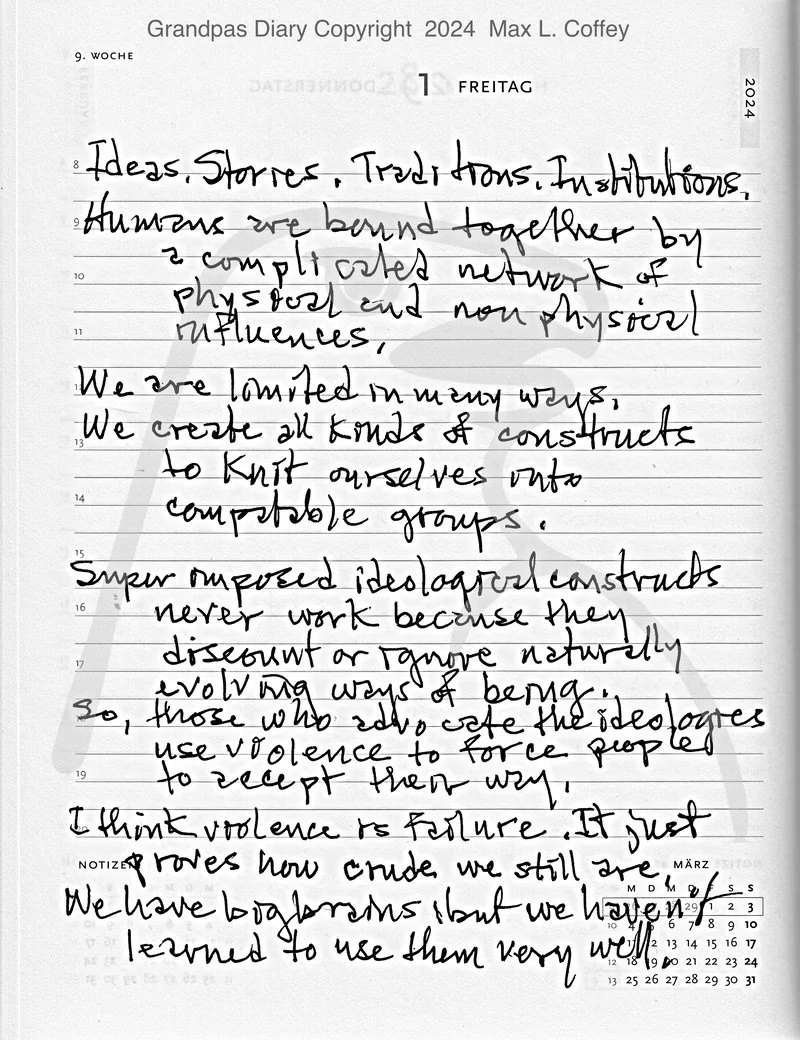 Grandpas Diary Copyright 2024 Max L. Coffey
9. WOCHE
1 FREITAG
2024
8 Ideas, Stories, Traditions, Institutions,
9 Humans are bound together by
a complicated network of
10 physical and non physical
11 influences,
12 We are limited in many ways,
We create all kinds of constructs
13 to knit ourselves into
14 compatable groups.
15 Super imposed ideological constructs
16 never work because they
discount or ignore naturally
17 evolving ways of being.
So, those who advocate the ideologies
use violence to force people
19 to accept their way,
I think violence is failure. It just
NOTIZEN proves how crude we still are.
MÄRZ
We have big brains but we haven't
learned to use them very well.
M D M D F S S
29 1 2 3
10 4 6 7 8 9 10
11 12 13 14 15 16 17
12 18 19 20 21 22 23 24
13 25 26 27 28 29 30 31